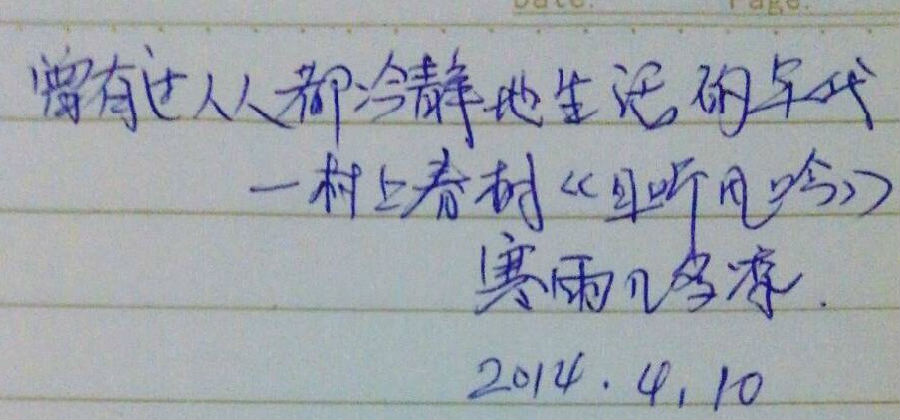 Date. Page.
曾有过人人都冷静地生活的年代
—村上春树《且听风吟》
寒雨几多凉.
2014.4.10